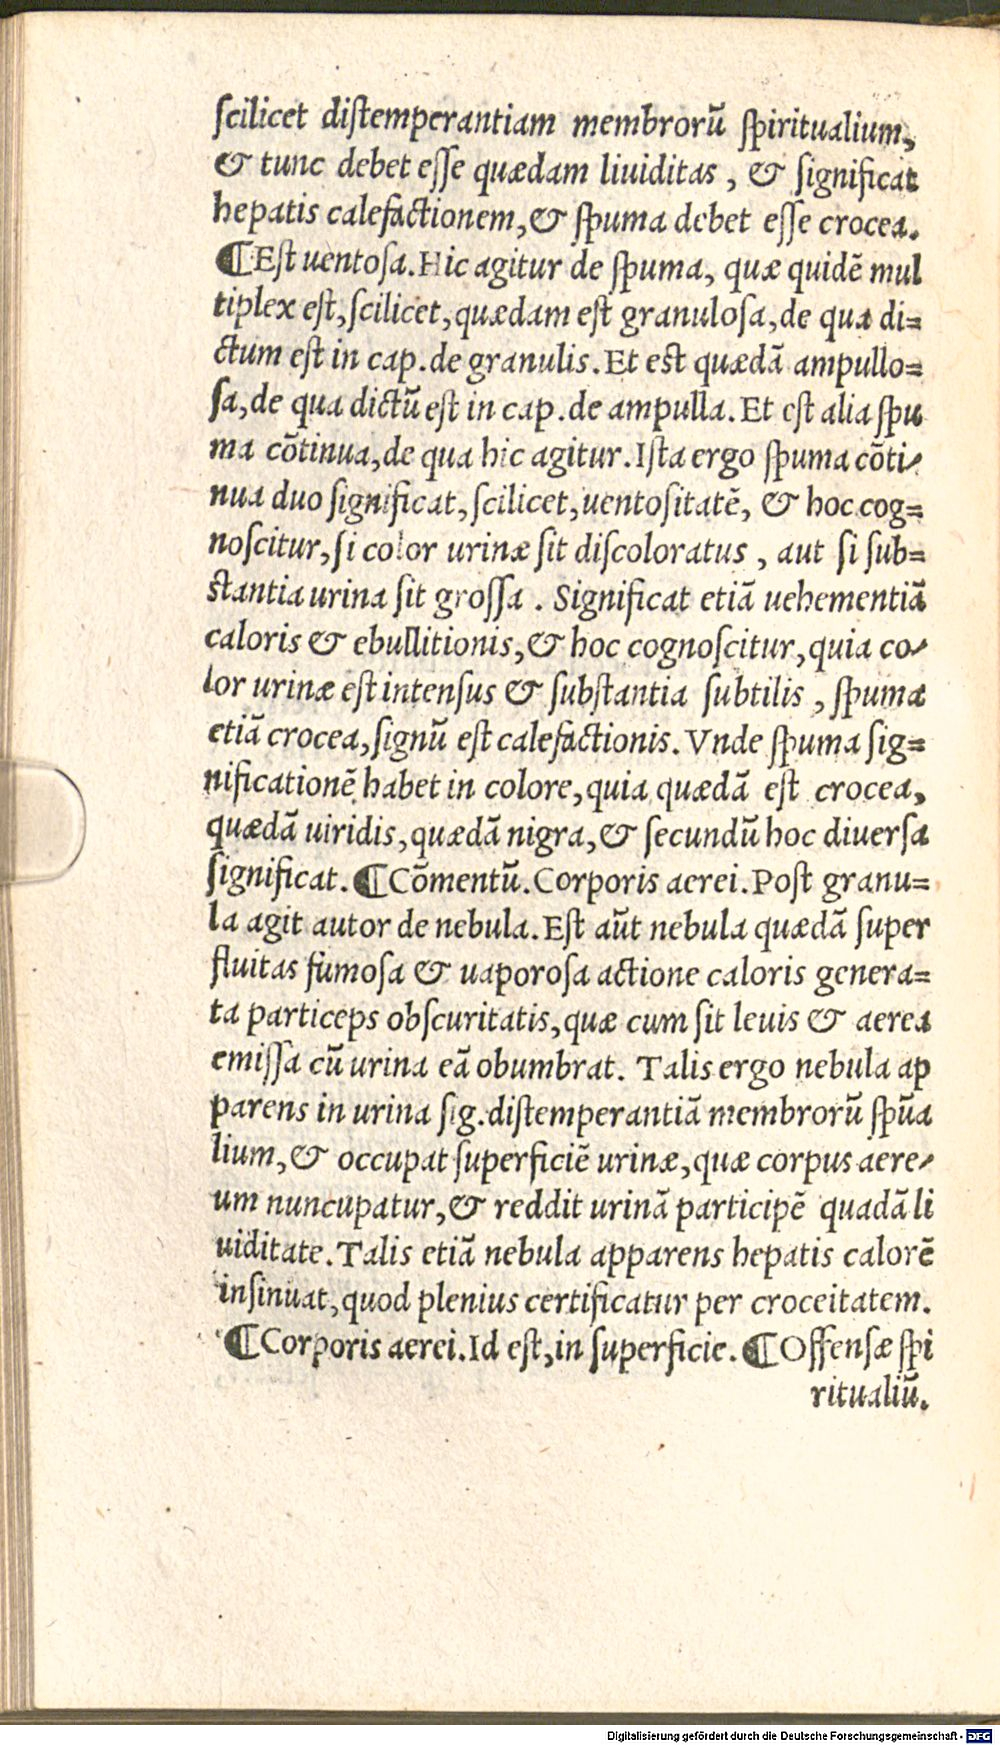 ſcilicet diſtemperantiam membrorū ſpiritualium,
& tunc debet eſſe quædam liuiditas, & ſignificat
hepatis calefactionem, & ſpuma debet eſſe crocea.
¶ Eſt uentoſa. Hic agitur de ſpuma, quæ quidē mul
tiplex eſt, ſcilicet, quædam eſt granuloſa, de qua di=
ctum eſt in cap. de granulis. Et eſt quædā ampullo=
ſa, de qua dictū eſt in cap. de ampulla. Et eſt alia ſpu
ma cōtinua, de qua hic agitur. Iſta ergo ſpuma cōti-
nua duo ſignificat, ſcilicet, uentoſitatē, & hoc cog=
noſcitur, ſi color urinæ ſit diſcoloratus, aut ſi ſub=
ſtantia urina ſit groſſa. Significat etiā uehementiā
caloris & ebullitionis, & hoc cognoſcitur, quia co-
lor urinæ eſt intenſus & ſubſtantia ſubtilis, ſpuma
etiā crocea, ſignū eſt calefactionis. Vnde ſpuma ſig=
nificationē habet in colore, quia quædā eſt crocea,
quædā uiridis, quædā nigra, & ſecundū hoc diuerſa
ſignificat. ¶ Cōmentū. Corporis aerei. Poſt granu=
la agit autor de nebula. Eſt aūt nebula quædā ſuper
fluitas fumoſa & uaporoſa actione caloris genera=
ta particeps obſcuritatis, quæ cum ſit leuis & aerea
emiſſa cū urina eā obumbrat. Talis ergo nebula ap
parens in urina ſig. diſtemperantiā membrorū ſpūa
lium, & occupat ſuperficiē urinæ, quæ corpus aere-
um nuncupatur, & reddit urinā participē quadā li
uiditate. Talis etiā nebula apparens hepatis calorē
inſinuat, quod plenius certificatur per croceitatem.
¶ Corporis aerei. Id eſt, in ſuperficie. ¶ Offenſæ ſpi
ritualiū.
Digitalisierung gefördert durch die Deutsche Forschungsgemeinschaft - DFG